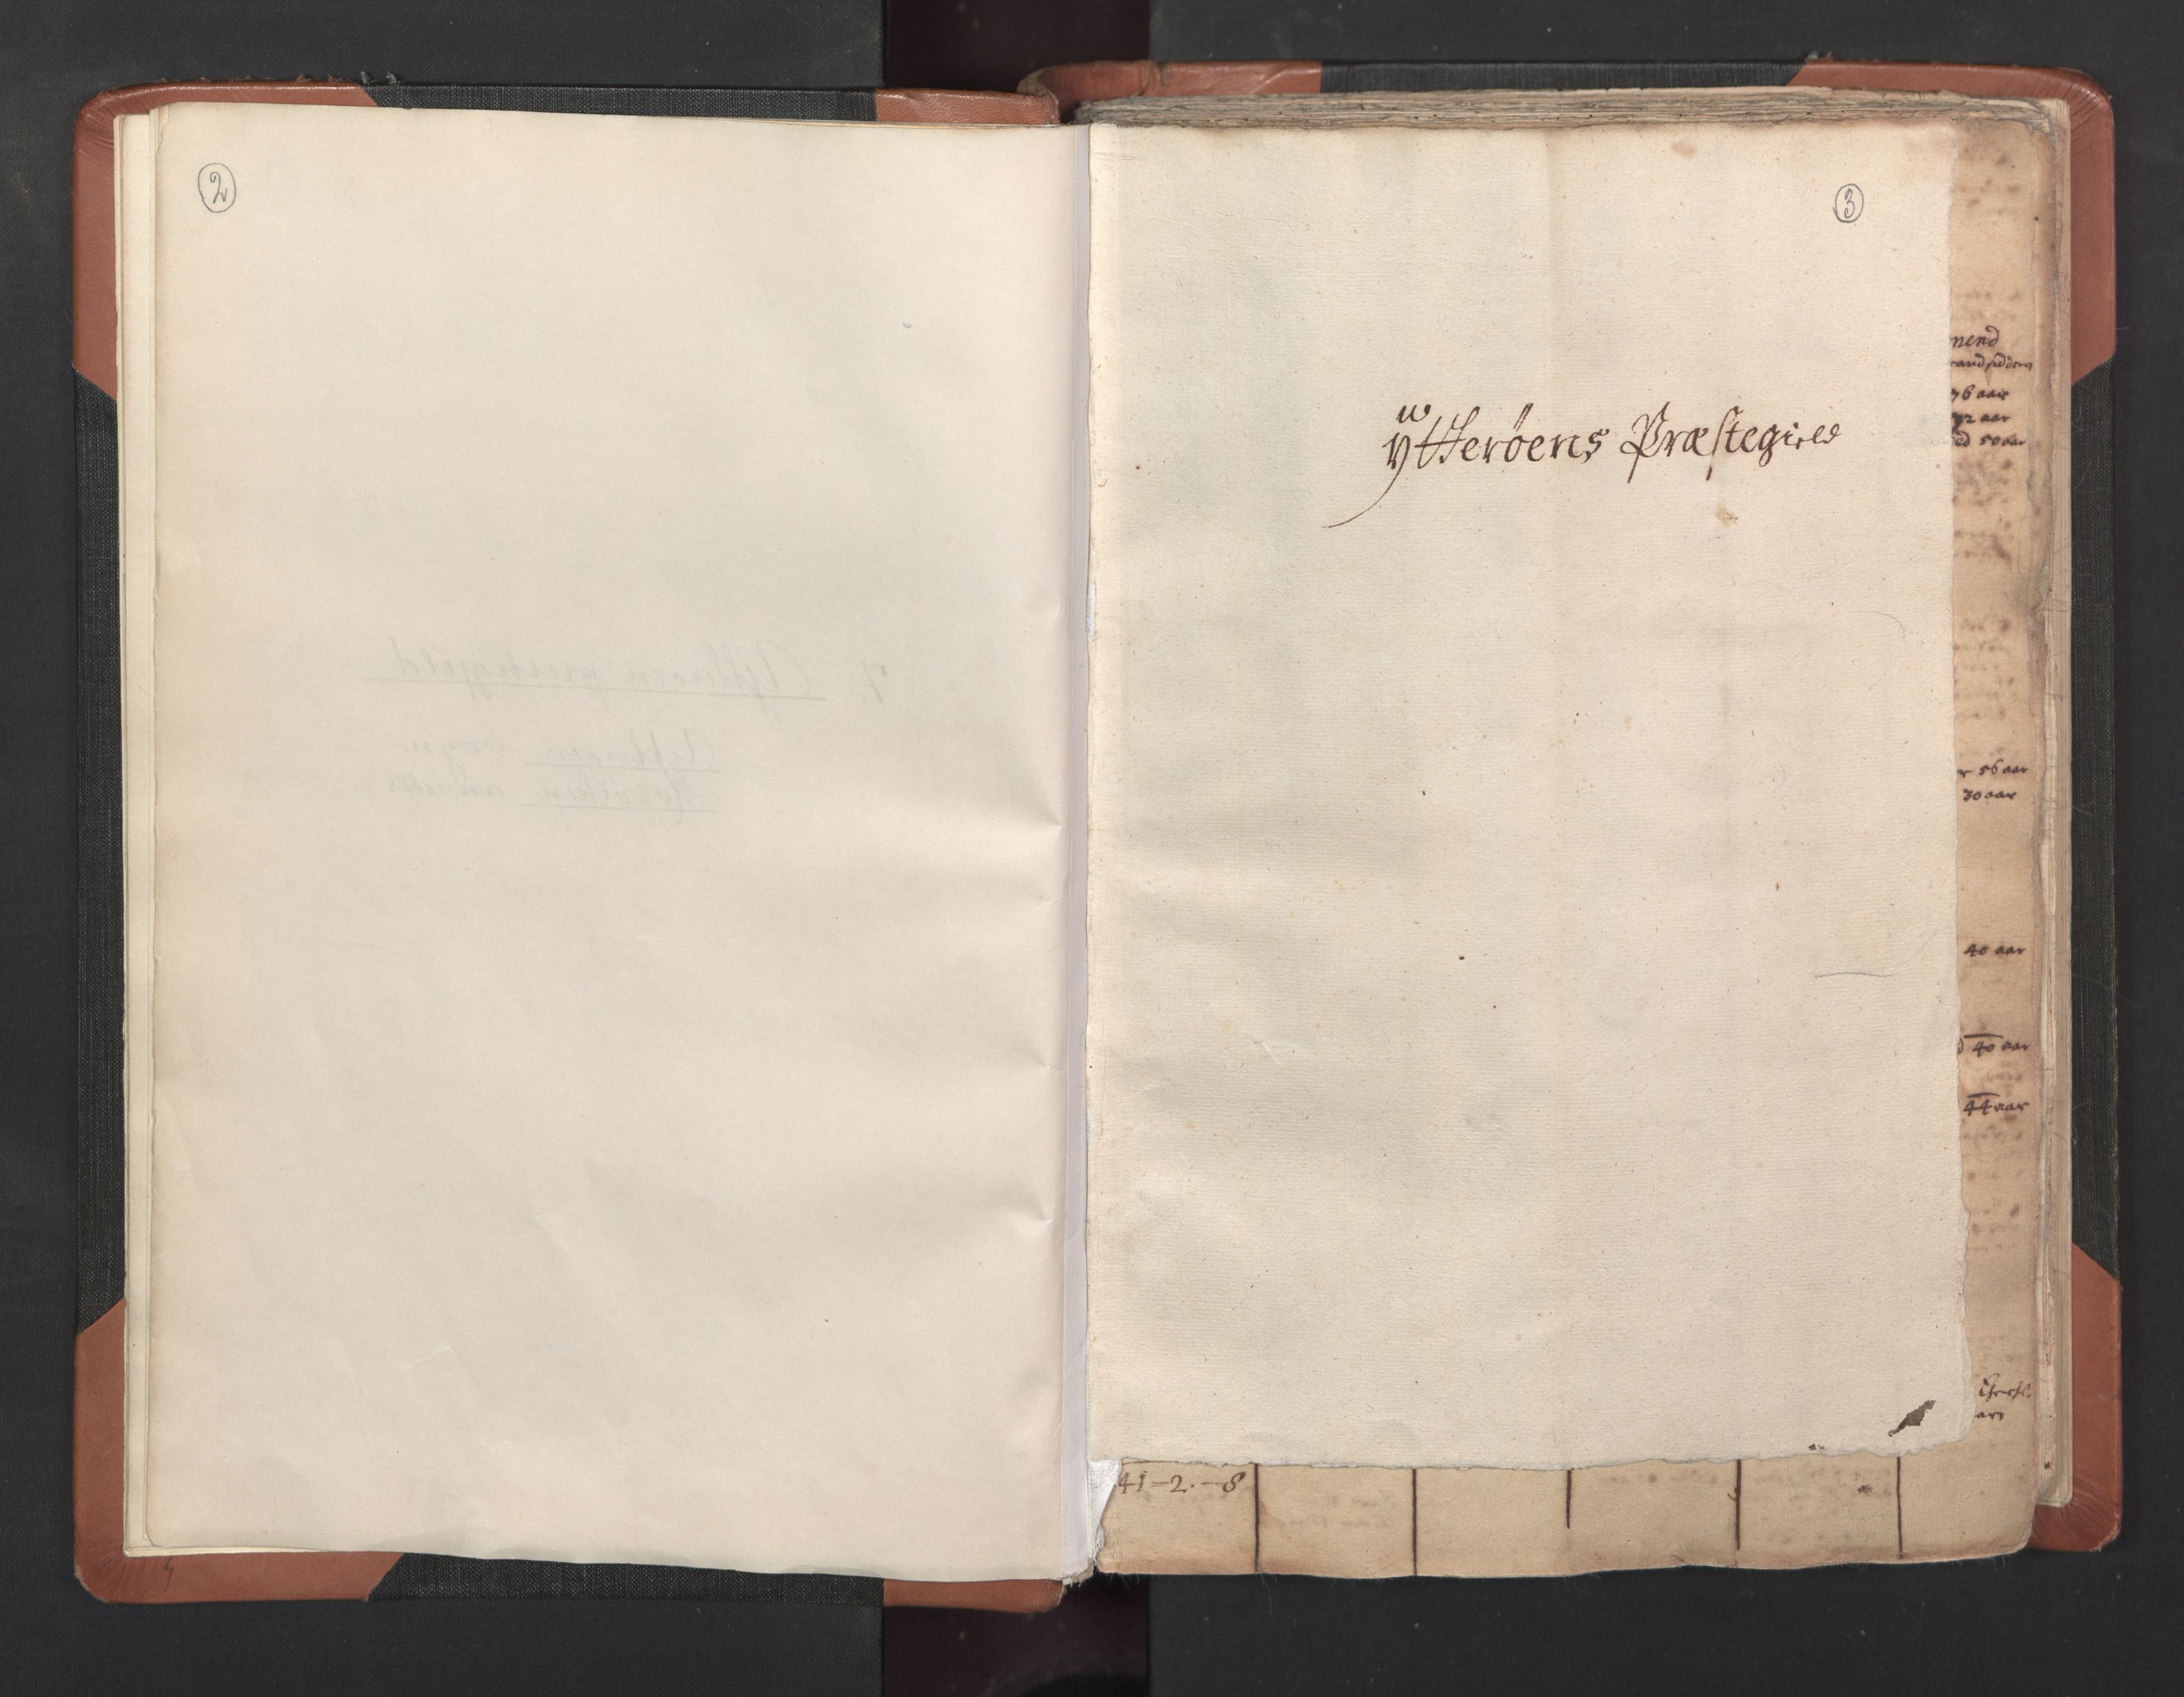 2
3
ytterøens Præstegield
mend
76 aar
50 aar
56 aar
30 aar
40 aar
40 aar
44 aar
41-2.-8